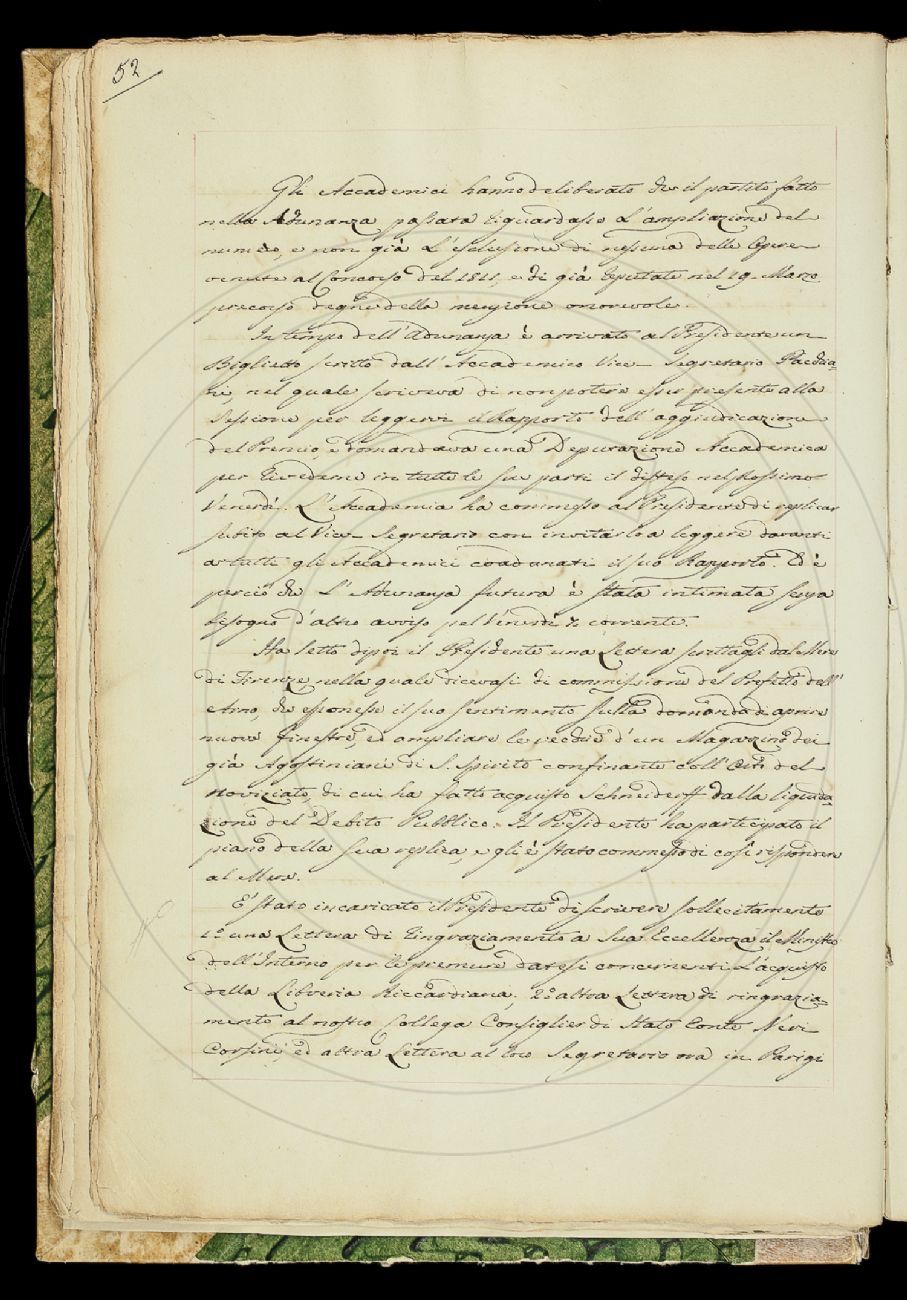 52
Gli Accademici hanno deliberato che il partito fatto
nella Adunanza passata riguardasse l'ampliazione del
numero, e non già l'esclusione di nessuna delle Opere
venute al Concorso del 1811, e di già reputate nel 19. Marzo
precorso degne della menzione onorevole.
In tempo dell'Adunanza è arrivato al Presidente un
Biglietto scritto dall'Accademico Vice-Segretario
nel quale scriveva di non potere esser presente alla
Sessione per leggervi il Rapporto dell'aggiudicazione
del Premio, e domandava una Deputazione Accademica
per rivederne in tutte le sue parti il disteso nel prossimo
Venerdì. L'Accademia ha commesso al Presidente di replicar
subito al Vice-Segretario con invitarlo a leggere davanti
a tutti gli Accademici coadunati il suo Rapporto. Ed è
perciò che l'Adunanza futura è stata intimata senza
bisogno d'altro avviso pel Venerdì corrente.
Ha letto dipoi il Presidente una Lettera scrittagli dal Mere
di Firenze, nella quale dicevasi di commissione del Prefetto dell'
Arno, che esponesse il suo sentimento sulla domanda di aprire
nuove finestre, ed ampliare le vecchie d'un Magazzino dei
già Agostiniani di S. Spirito confinante coll'Orto del
Noviziato, di cui ha fatto acquisto Schneiderff dalla liquida-
zione del Debito Pubblico. Il Presidente ha participato il
piano della sua replica, e gli è stato commesso di così rispondere
al Mere.
E' stato incaricato il Presidente di scrivere sollecitamente
1.o una Lettera di ringraziamento a Sua Eccellenza il Ministro
dell'Interno per le premure datesi concernenti l'acquisto
della Libreria Riccardiana; 2.o altra Lettera di ringrazia-
mento al nostro Collega Consiglier di Stato Conte Neri
Corsini, ed altra Lettera al loro Segretario ora in Parigi